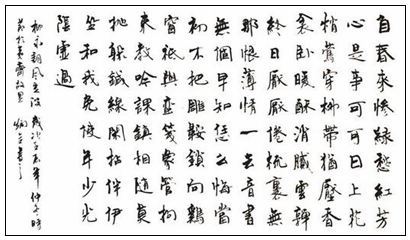 自春來慘綠愁紅芳
心是事可可日上花
梢鶯穿柳帶猶壓香
衾臥暖酥消膩雲嚲
終日厭厭倦梳裹無
那恨薄情一去音書
無個早知恁么悔當
初不把雕鞍鎖向雞
窗祇與蠻箋象管拘
束教吟課鎮相隨莫
抛躲鍼線閒拈伴伊
坐和我免使年少光
陰虛過
柳永詞